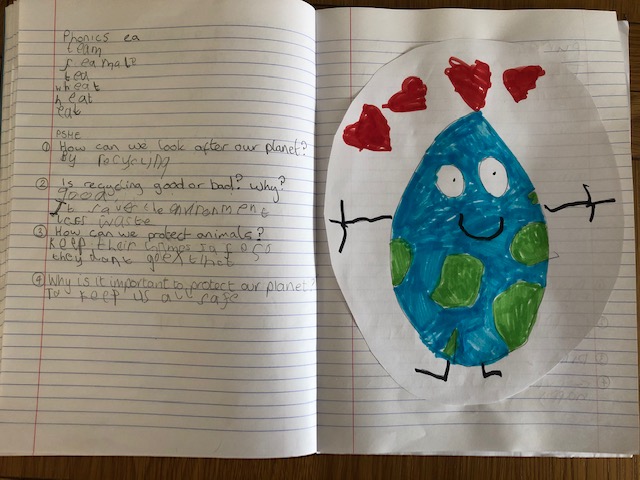 Phonics ea
team
tea
wheat
heat
eat
PSHE
① How can we look after our planet?
By recycling
② Is recycling good or bad? Why?
good
It environment
less waste
③ How can we protect animals?
keep their homes safe so
they don't
④ Why is it important to protect our planet?
To keep us all safe